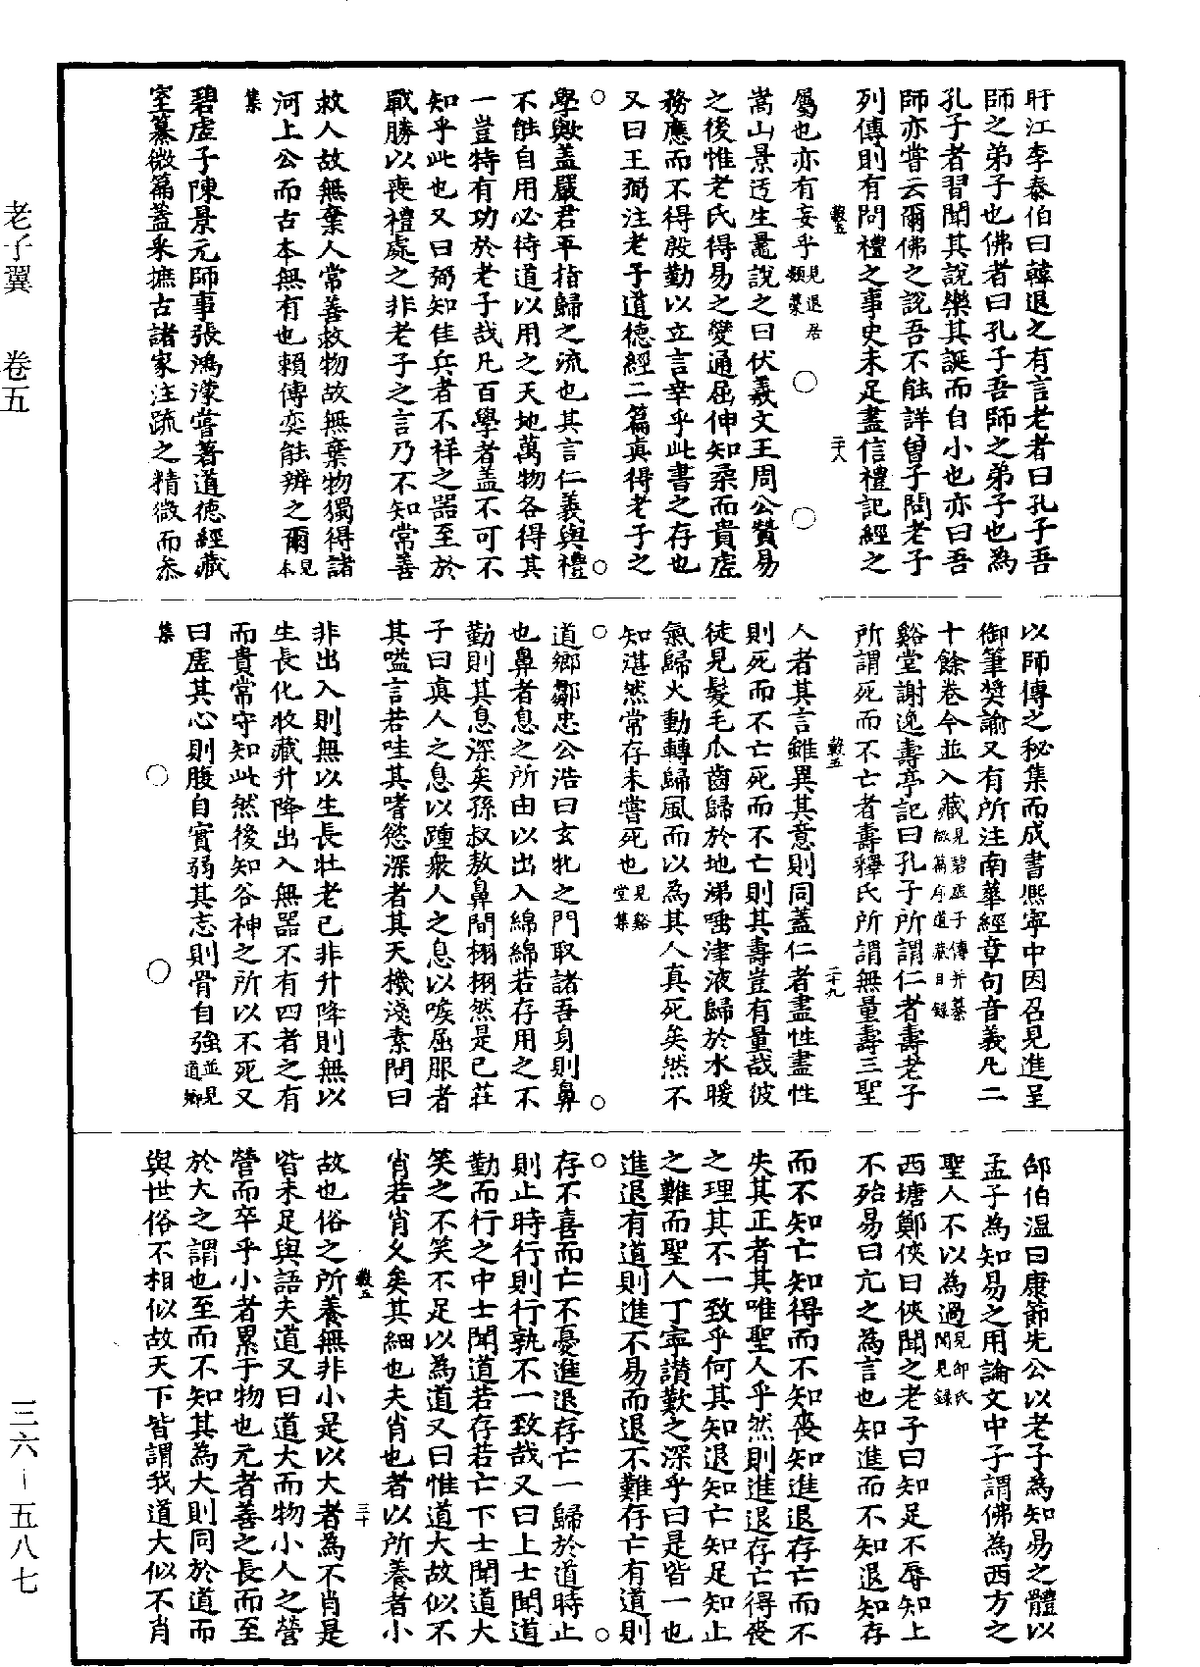 盱江李泰伯曰韓退之有言老者曰孔子吾
師之弟子也佛者曰孔子吾師之弟子也為
孔子者習聞其說樂其誕而自小也亦曰吾
師亦嘗云爾佛之說吾不能詳曾子問老子
列傳則有問禮之事史未足盡信禮記經之
穀五
二十八
屬也亦有妄乎見退居類藁
嵩山景迃生鼂說之曰伏羲文王周公贊易
之後惟老氏得易之變通屈伸知柔而貴虛
務應而不得殷勤以立言幸乎此書之存也
又曰王弼注老子道德經二篇真得老子之
學歟蓋嚴君平指歸之流也其言仁義與禮
不能自用必待道以用之天地萬物各得其
一豈特有功於老子哉凡百學者蓋不可不
知乎此也又曰弼知佳兵者不祥之器至於
戰勝以喪禮處之非老子之言乃不知常善
救人故無棄人常善救物故無棄物獨得諸
河上公而古本無有也賴傅奕能辨之爾見本
集
碧虛子陳景元師事張鴻濛嘗著道德經藏
室纂微篇蓋釆摭古諸家注疏之精微而叅
以師傳之秘集而成書熈寧中因召見進呈
御筆奬諭又有所注南華經章句音義凡二
十餘卷今並入藏見碧虛子傳并纂微篇序道藏目録
谿堂謝逸壽亭記曰孔子所謂仁者壽老子
所謂死而不亡者壽釋氏所謂無量壽三聖
穀五
二十九
人者其言雖異其意則同蓋仁者盡性盡性
則死而不亡死而不亡則其壽豈有量哉彼
徒見髮毛爪齒歸於地涕唾津液歸於水暖
氣歸火動轉歸風而以為其人真死矣然不
知湛然常存未嘗死也見谿堂集
道鄉鄒忠公浩曰玄牝之門取諸吾身則鼻
也鼻者息之所由以出入綿綿若存用之不
勤則其息深矣孫叔敖鼻間栩栩然是已莊
子曰真人之息以踵衆人之息以喉屈服者
其嗌言若哇其嗜慾深者其天機淺素問曰
非出入則無以生長壯老已非升降則無以
生長化收藏升降出入無器不有四者之有
而貴常守知此然後知谷神之所以不死又
曰虛其心則腹自實弱其志則骨自強並見道鄉
集
邵伯溫曰康節先公以老子為知易之體以
孟子為知易之用論文中子謂佛為西方之
聖人不以為過見邵氏聞見録
西塘鄭俠曰俠聞之老子曰知足不辱知止
不殆易曰亢之為言也知進而不知退知存
而不知亡知得而不知喪知進退存亡而不
失其正者其唯聖人乎然則進退存亡得喪
之理其不一致乎何其知退知亡知足知止
之難而聖人丁寧讃歎之深乎曰是皆一也
進退有道則進不易而退不難存亡有道則
存不喜而亡不憂進退存亡一歸於道時止
則止時行則行孰不一致哉又曰上士聞道
勤而行之中士聞道若存若亡下士聞道大
笑之不笑不足以為道又曰惟道大故似不
肖若肖久矣其細也夫肖也者以所養者小
穀五
三十
故也俗之所養無非小是以大者為不肖是
皆未足與語夫道又曰道大而物小人之營
營而卒乎小者累于物也元者善之長而至
於大之謂也至而不知其為大則同於道而
與世俗不相似故天下皆謂我道大似不肖
老子翼 卷五
三六－五八七